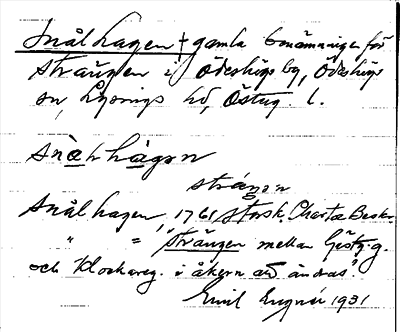 Snålhagen † gamla benämningen för
Strängen i Ödeshögs by, Ödeshögs
sn, Lysings hd, Östug. l.
snàlhàgon
strángon
Snålhagen, 1761 Storsk. Charta Beskr.
" = "Strängen mellan Gästg.g.
och Klockareg. i åkern att ändras".
Emil 1931